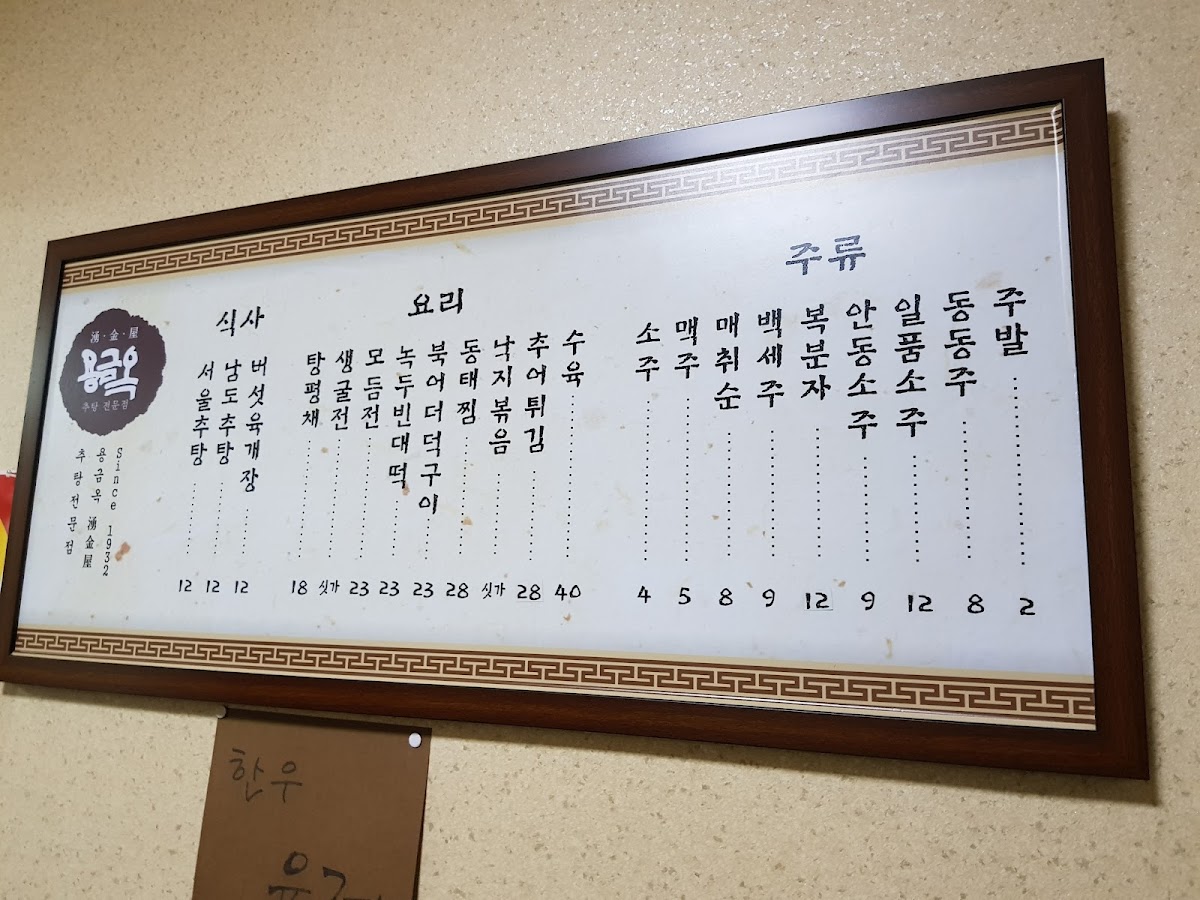 湧·金·屋
용금옥
추탕 전문점
Since 1932
용금옥 湧金屋
추탕전문점
식사
서울추탕 12
남도추탕 12
버섯육개장 12
요리
탕평채 18
생굴전 싯가
모듬전 23
녹두빈대떡 23
북어더덕구이 23
동태찜 28
낙지볶음 싯가
추어튀김 28
수육 40
주류
소주 4
맥주 5
매취순 8
백세주 9
복분자 12
안동소주 9
일품소주 12
동동주 8
주발 2
한우